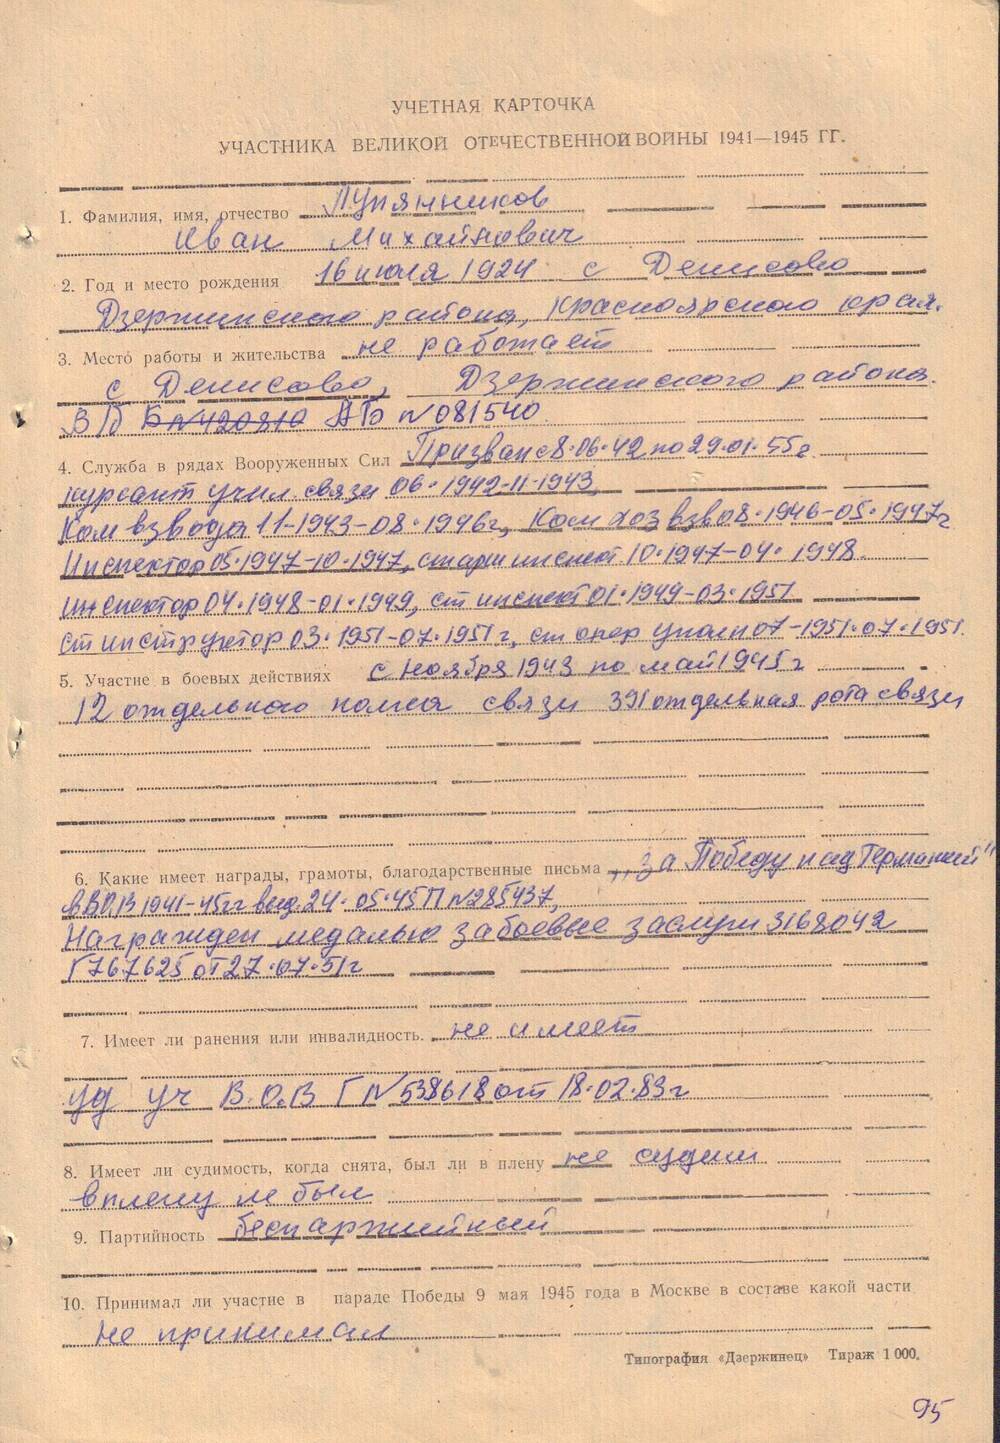 УЧЕТНАЯ КАРТОЧКА
УЧАСТНИКА ВЕЛИКОЙ ОТЕЧЕСТВЕННОЙ ВОЙНЫ 1941—1945 ГГ.
1. Фамилия, имя, отчество Лупянников
Иван Михайлович
2. Год и место рождения 16 июля 1924 с Денисово
Дзержинского района, Красноярского края.
3. Место работы и жительства не работает
с Денисово, Дзержинского района.
В/б Б№420810 АБ №081540.
4. Служба в рядах Вооруженных Сил Призван с 8.06.42 по 29.01.55г.
курсант учил. связи 06.1942-11-1943,
Ком взвода 11-1943-08.1946г, Ком хоз взв 08.1946-05.1947г
Инспектор 05.1947-10.1947, старш инспект 10.1947-04.1948.
инспектор 04.1948-01.1949, ст инспект 01.1949-03.1951
ст инструктор 03.1951-07.1951г, ст опер уполн 07-1951.07.1951.
5. Участие в боевых действиях с ноября 1943 по май 1945г
12 отдельного полка связи 391 отдельная рота связи
6. Какие имеет награды, грамоты, благодарственные письма „за Победу над Германией"
в ВОВ 1941-45гг выд. 24.05.45 П №285437,
Награжден медалью за боевые заслуги 3168042
Г 767625 от 27.07.51г
7. Имеет ли ранения или инвалидность. не имеет
уд уч В.О.В Г №538618 от 18.02.83г
8. Имеет ли судимость, когда снята, был ли в плену не судим
в плену не был
9. Партийность беспартийный
10. Принимал ли участие в параде Победы 9 мая 1945 года в Москве в составе какой части
не принимал
Типография «Дзержинец» Тираж 1 000.
95